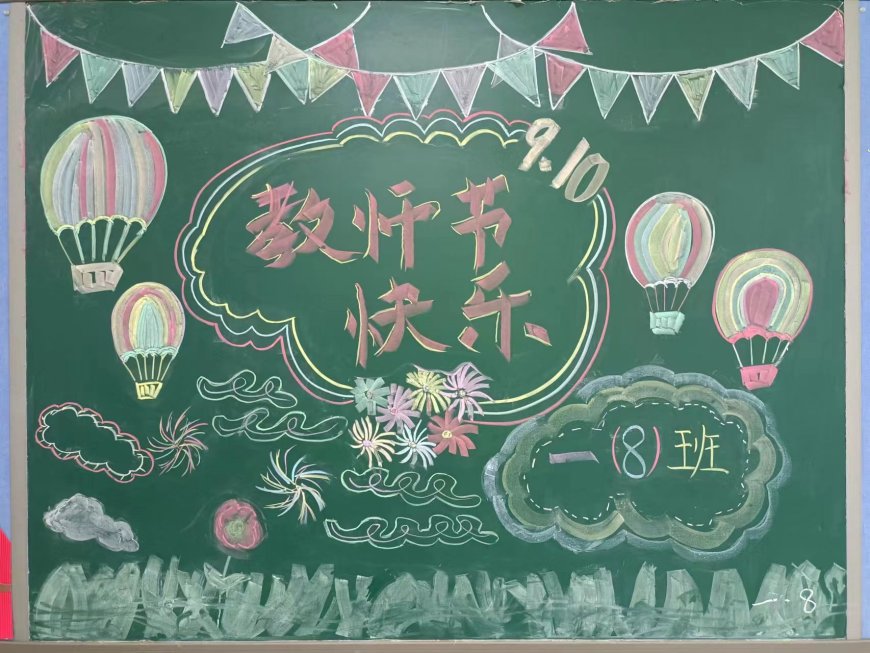 9.10
教师节
快乐
一(8)班
一.8